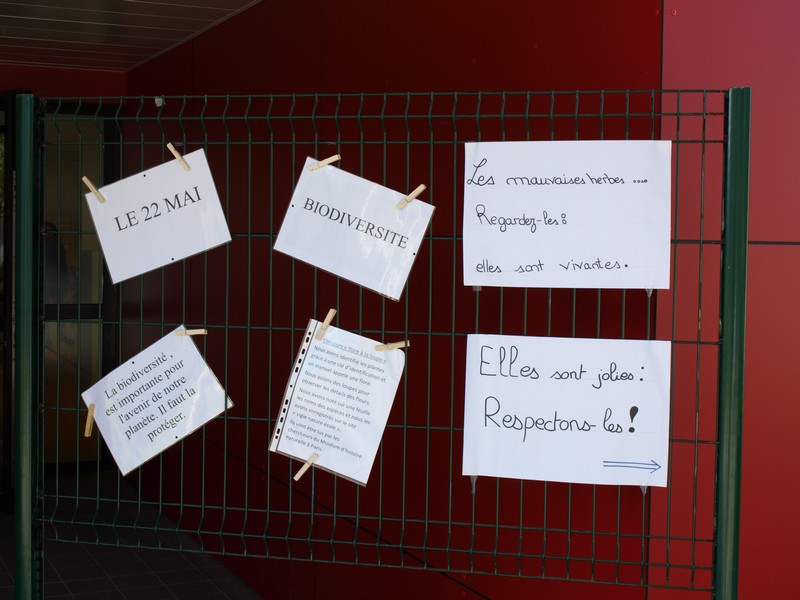 LE 22 MAI
BIODIVERSITE
Les mauvaises herbes ....
Regardez-les :
elles sont vivantes.
La biodiversité ,
est importante pour
l'avenir de notre
planète. Il faut la
protéger.
« flore à la loupe »
Nous avons identifié les plantes
grâce à une clé d'identification et
un manuel appelé une flore.
Nous avions des loupes pour
observer les détails des fleurs.
Nous avons noté sur une feuille
les noms des espèces et nous les
avons enregistrés sur le site
« vigie nature école ».
Ils vont être lus par les
chercheurs du Muséum d'histoire
naturelle à Paris.
Elles sont jolies :
Respectons-les !